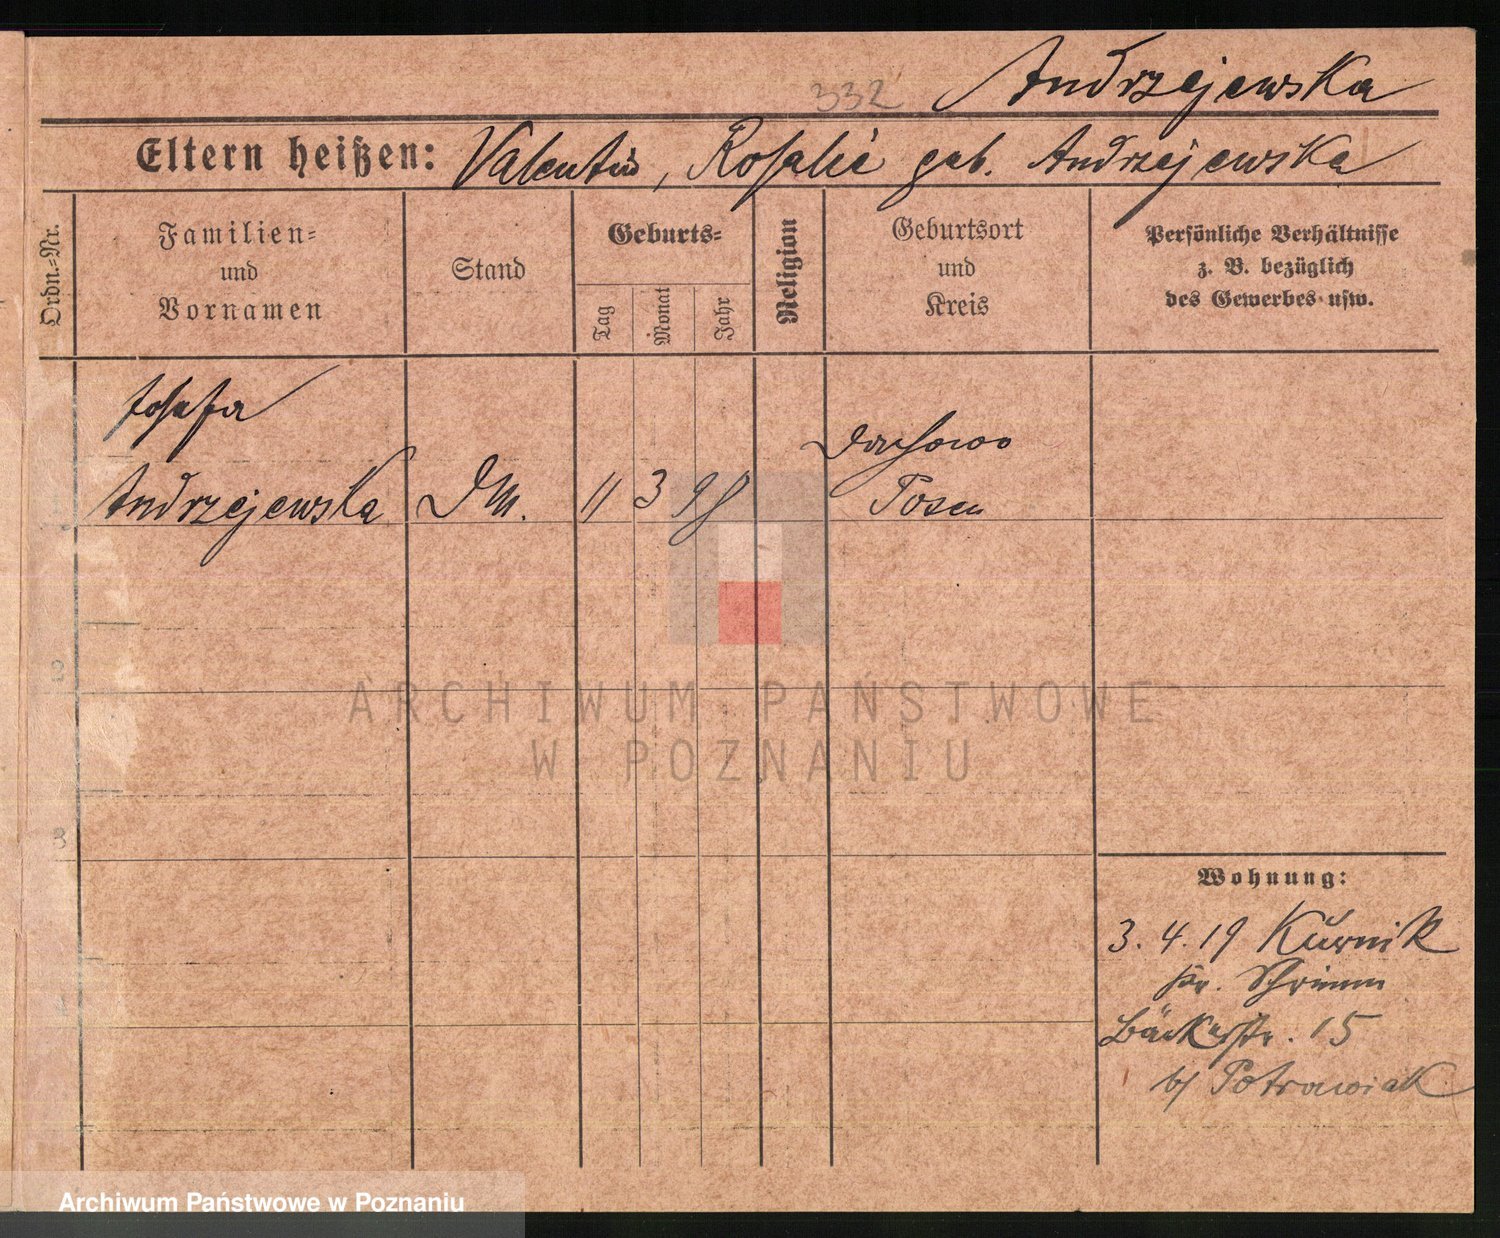 332 Andrzejewska
Eltern heißen: Valentin, Rosalie geb. Andrzejewska
Ordn.-Nr.
Familien-
und
Vornamen
Stand
Geburts-
Tag
Monat
Jahr
Religion
Geburtsort
und
Kreis
Persönliche Verhältnisse
z. B. bezüglich
des Gewerbes usw.
Josefa
Andrzejewska
DM. 11 3 98
Dachowo
Posen
1
2
3
4
ARCHIWUM PAŃSTWOWE
W POZNANIU
Wohnung:
3. 4. 19 Kurnik
Kr. Schrimm
Bäckerstr. 15
b/ Potrawiak
Archiwum Państwowe w Poznaniu